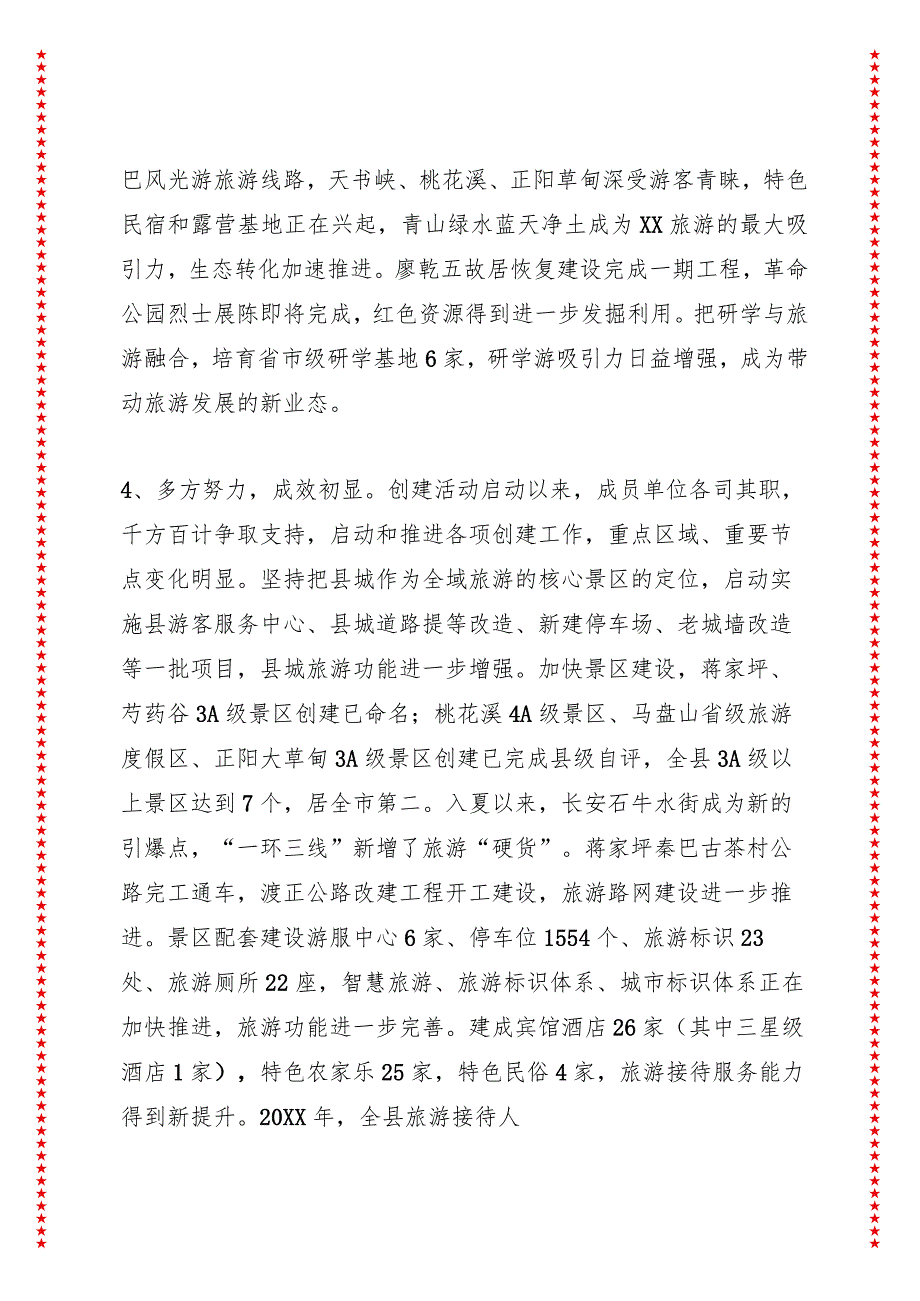 巴风光游旅游线路，天书峡、桃花溪、正阳草甸深受游客青睐，特色
民宿和露营基地正在兴起，青山绿水蓝天净土成为 XX 旅游的最大吸
引力，生态转化加速推进。廖乾五故居恢复建设完成一期工程，革命
公园烈士展陈即将完成，红色资源得到进一步发掘利用。把研学与旅
游融合，培育省市级研学基地 6 家，研学游吸引力日益增强，成为带
动旅游发展的新业态。
4、多方努力，成效初显。创建活动启动以来，成员单位各司其职，
千方百计争取支持，启动和推进各项创建工作，重点区域、重要节
点变化明显。坚持把县城作为全域旅游的核心景区的定位，启动实
施县游客服务中心、县城道路提等改造、新建停车场、老城墙改造
等一批项目，县城旅游功能进一步增强。加快景区建设，蒋家坪、
芍药谷 3A 级景区创建已命名；桃花溪 4A 级景区、马盘山省级旅游
度假区、正阳大草甸 3A 级景区创建已完成县级自评，全县 3A 级以
上景区达到 7 个，居全市第二。入夏以来，长安石牛水街成为新的
引爆点，“一环三线”新增了旅游“硬货”。蒋家坪秦巴古茶村公
路完工通车，渡正公路改建工程开工建设，旅游路网建设进一步推
进。景区配套建设游服中心 6 家、停车位 1554 个、旅游标识 23
处、旅游厕所 22 座，智慧旅游、旅游标识体系、城市标识体系正在
加快推进，旅游功能进一步完善。建成宾馆酒店 26 家（其中三星级
酒店 1 家），特色农家乐 25 家，特色民俗 4 家，旅游接待服务能力
得到新提升。20XX 年，全县旅游接待人